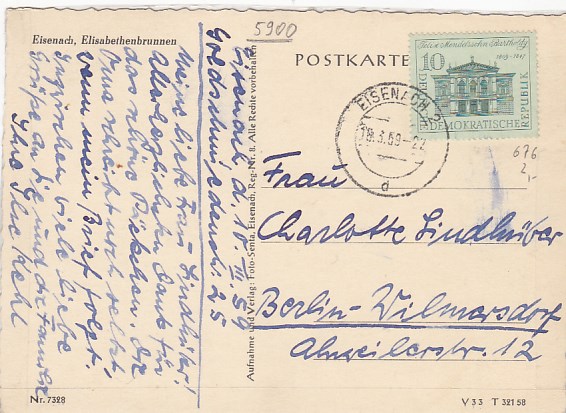 5900
Eisenach, Elisabethenbrunnen
Eisenach, d. 18. III. 59
Goldschmiedenstr. 25
Meine liebe Frau Lindhüber!
Allerherzlichsten Dank für
das schöne Päckchen. Die
Oma schreibt noch selbst,
wenn mein Brief folgt.
Inzwischen viele liebe
Grüße an Sie und die Familie
Ihre Ilse Kehl
Nr. 7328
Aufnahme und Verlag: Foto-Senta, Eisenach. Reg-Nr. 8. Alle Rechte vorbehalten
POSTKARTE
Felix Mendelssohn Bartholdy
1809-1847
10
DEUTSCHE DEMOKRATISCHE REPUBLIK
EISENACH 2
18.3.59-22
d
676
2,-
Frau
Charlotte Lindhüber
Berlin-Wilmersdorf
Ahrweilerstr. 12
V 3 3 T 321 58